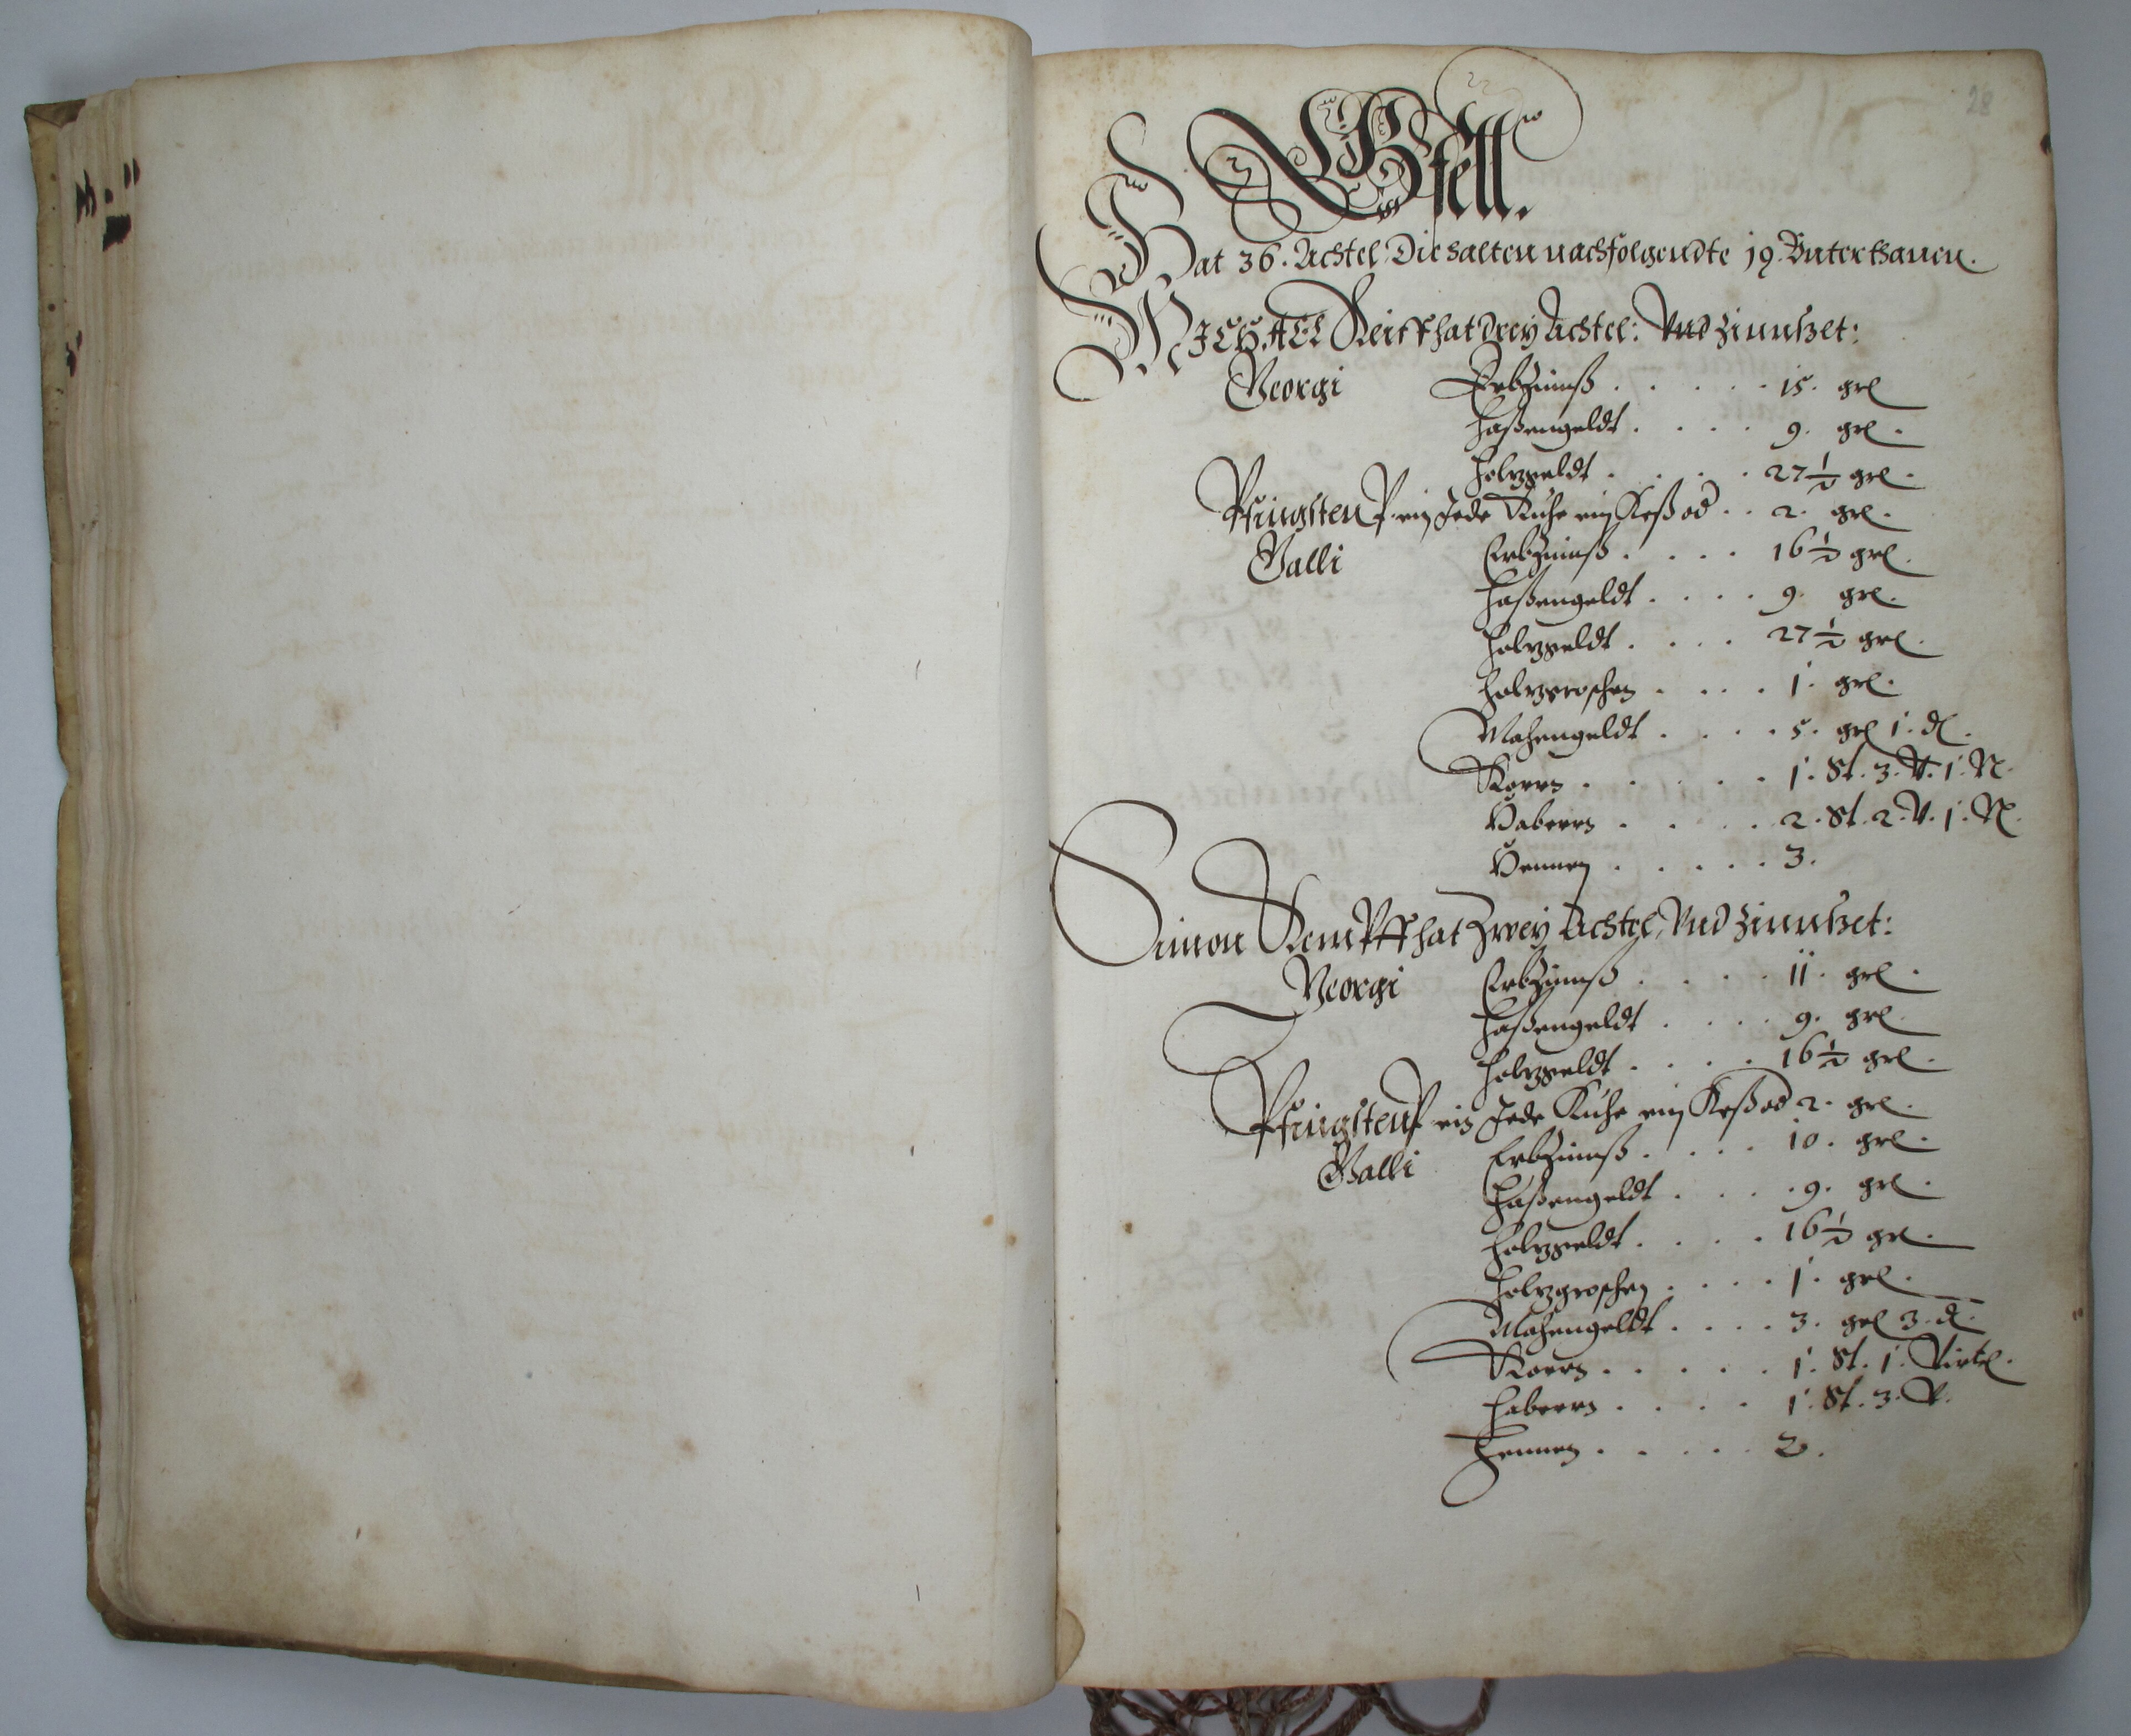 28
Gsell.
Hat 36. Achtel, Die halten nachfolgendte 19. Vnterthanen.
MICHAEL Reiff hat drey Achtel: Vnd Zinnßet:
Georgi Erbzinnß . . . . . 15. grl
Haßengeldt . . . . 9. grl.
Holzgeldt . . . . 27 1/2 grl.
Pfingsten P. ein Jede Kuhe ein Keß od . . 2. grl.
Galli Erbzinnß . . . . 16 1/2 grl.
Haßengeldt . . . . 9. grl.
Holzgeldt . . . . 27 1/2 grl.
Holzgroschen . . . . 1. grl.
Mahengeldt . . . . 5. grl 1. d.
Korn . . . . . 1. St. 3. V. 1. N.
Habern . . . . 2. St. 2. V. 1. N.
Hennen . . . . . 3.
Simon Kempff hat Zwey Achtel, Vnd Zinnßet:
Georgi Erbzinnß . . . . 11. grl.
Haßengeldt . . . . 9. grl.
Holzgeldt . . . . 16 1/2 grl.
Pfingsten P ein Jede Kuhe ein Keß od 2. grl.
Galli Erbzinnß . . . . 10. grl.
Haßengeldt . . . . 9. grl.
Holzgeldt . . . . 16 1/2 grl.
Holzgroschen . . . . 1. grl.
Mahengeldt . . . . 3. grl 3. d.
Korn . . . . . 1. St. 1. Virtel.
Habern . . . . 1. St. 3. V.
Hennen . . . . . 2.